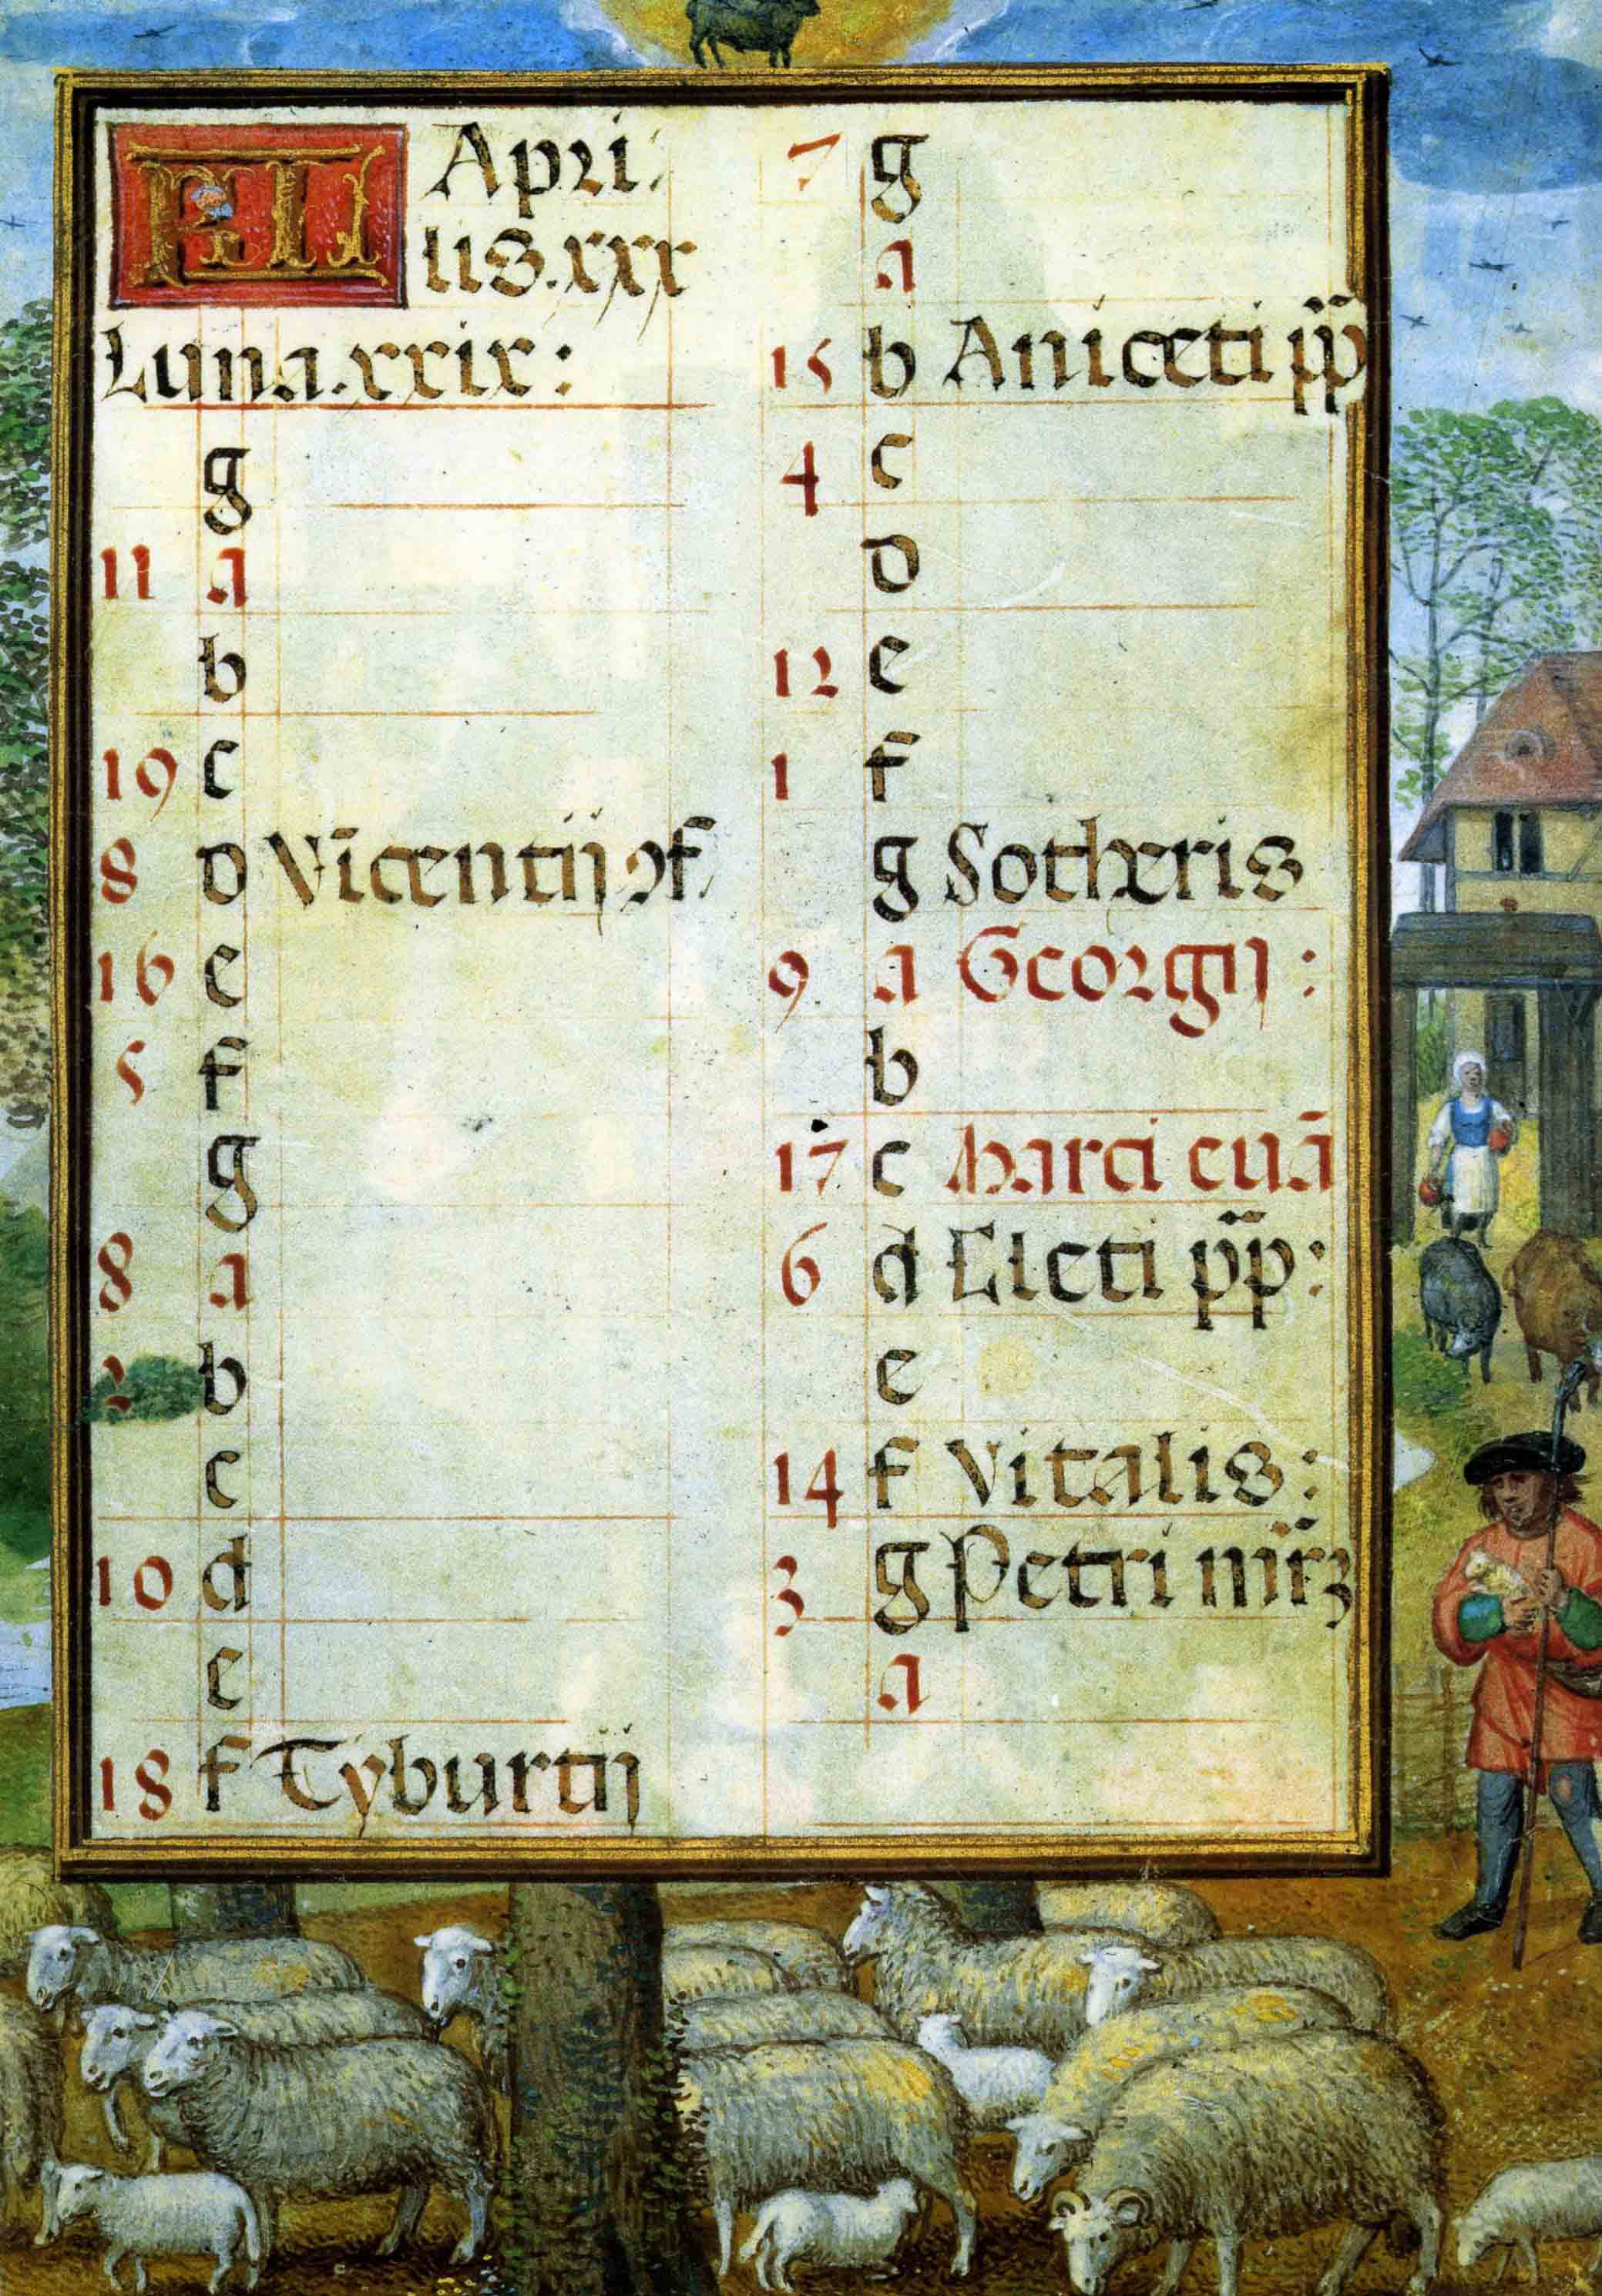 KL Apri
lis. xxx
Luna. xxix:
g
11 a
b
19 c
8 d Vīcentij ꝯf
16 e
5 f
g
8 a
2 b
c
10 d
e
18 f Tyburtij
7 g
a
15 b Aniceti pp̄
4 c
d
12 e
1 f
g Sotheris
9 a Georgij:
b
17 c Marci euā
6 d Cleti pp̄:
e
14 f Vitalis:
3 g Petri mr̄ꝫ
a